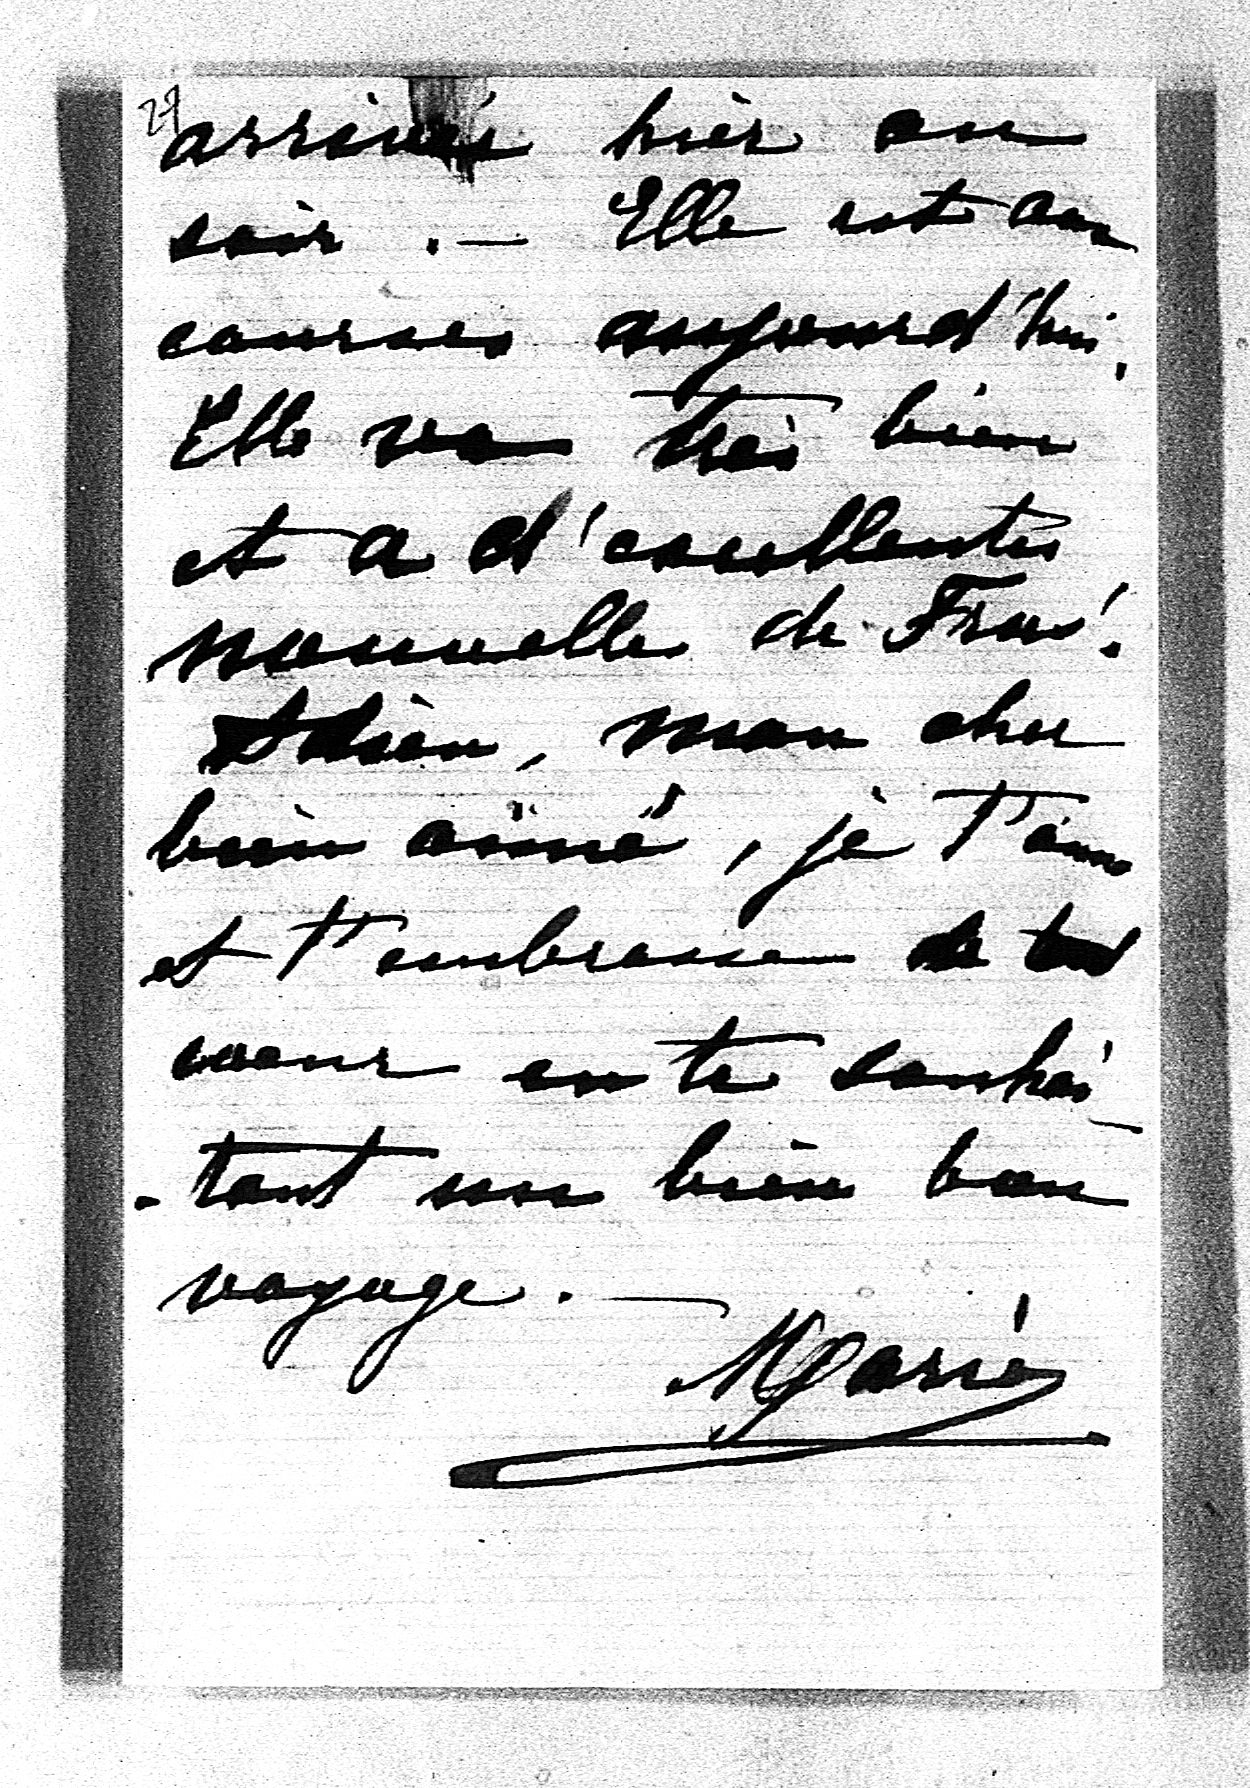 27
arrivés hier au
soir. — Elle est aux
courses aujourd'hui.
Elle va très bien
et a d'excellentes
nouvelles de
Adieu, mon cher
bien aimé, je t'aime
et t'embrasse de tout
coeur en te souhai-
-tant un bien bon
voyage. —
Marie